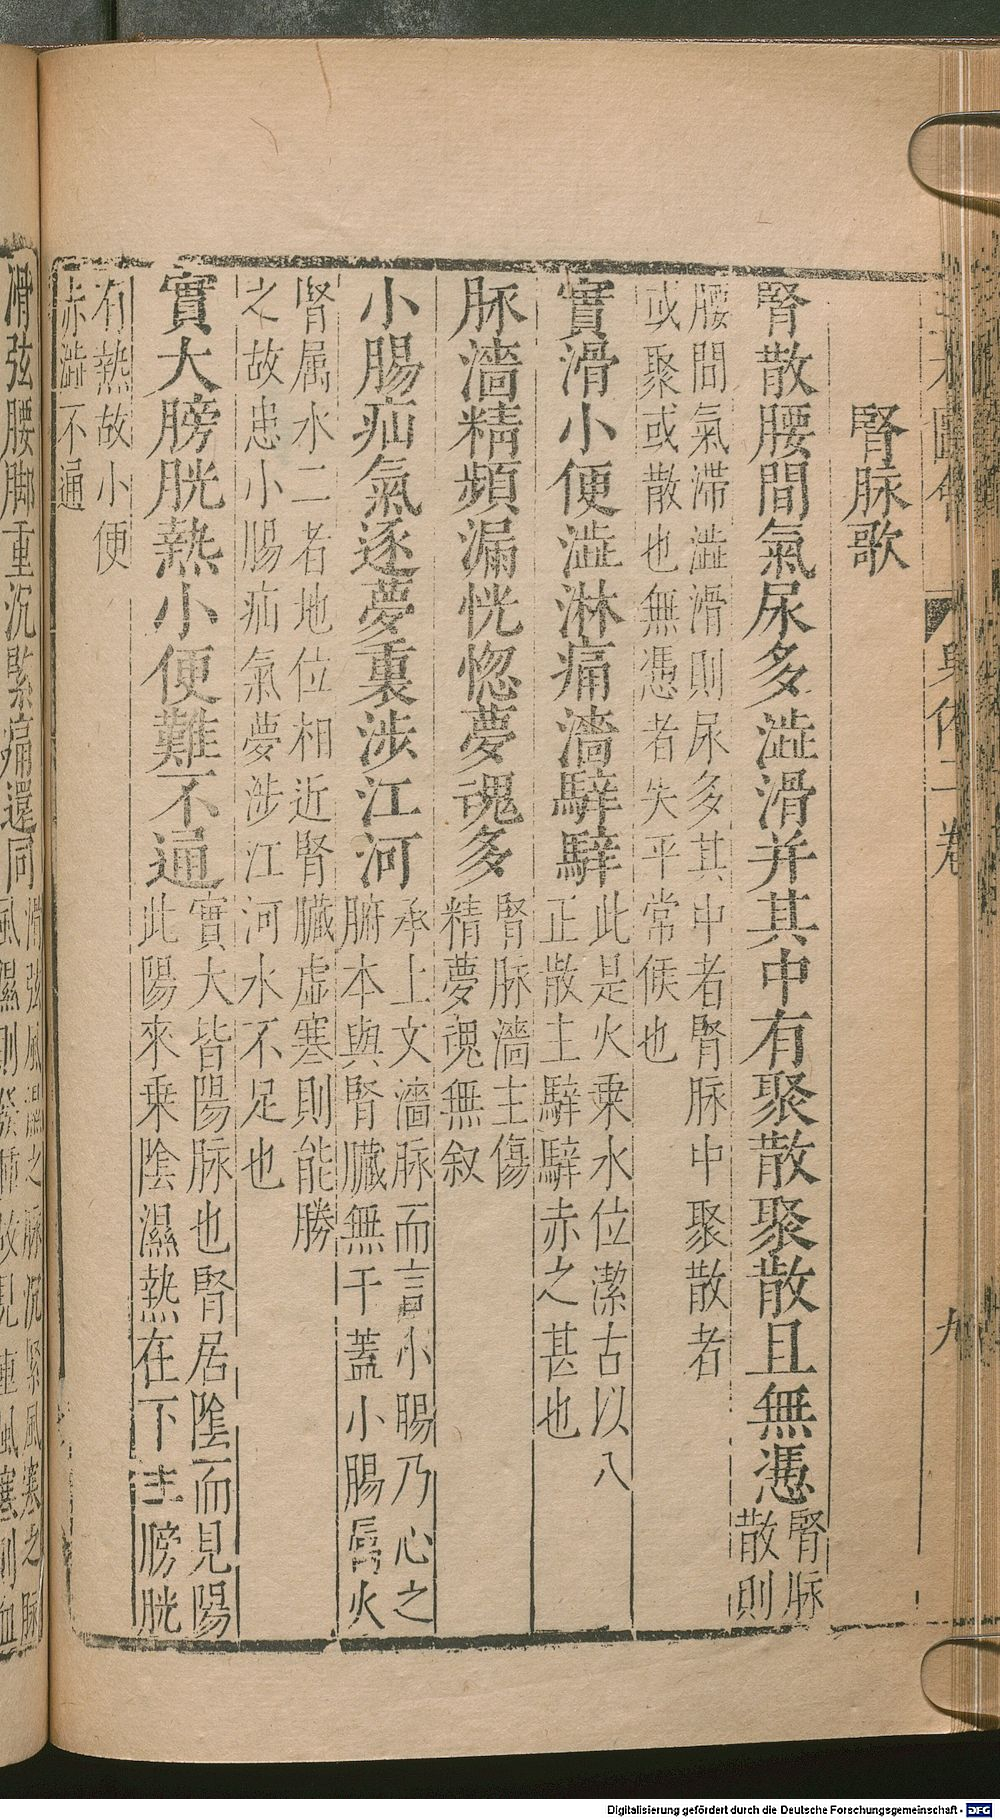 腎脉歌
腎散腰間氣尿多澁滑并其中有聚散聚散且無憑腎脉
散則
腰間氣滯澁滑則尿多其中者腎脉中聚散者
或聚或散也無憑者失平常候也
實滑小便澁淋痛濇騂騂此是火乗水位潔古以八
正散主騂騂赤之甚也
脉濇精頻漏恍惚夢魂多腎脉濇主傷
精夢魂無叙
小腸疝氣逐夢裏涉江河承上文濇脉而言小腸乃心之
腑本與腎臟無干蓋小腸屬火
腎属水二者地位相近腎臟虚寒則能勝
之故患小腸疝氣夢涉江河水不足也
實大膀胱熱小便難不通實大皆陽脉也腎居陰而見陽
此陽來乗陰濕熱在下主膀胱
有熱故小便
赤澁不通
滑弦腰脚重沉緊痛還同滑弦風濕之脉沉緊風寒之脉
風濕則發腫故見重風寒則血
九
Digitalisierung gefördert durch die Deutsche Forschungsgemeinschaft - DFG